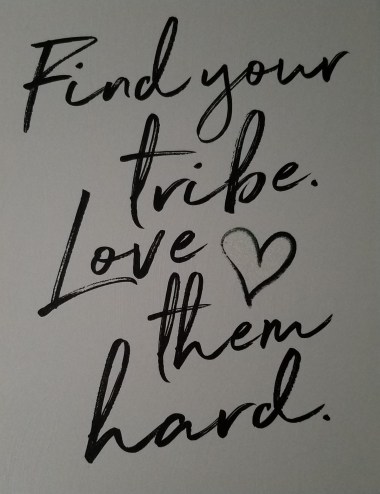 Find your
tribe.
Love
them
hard.